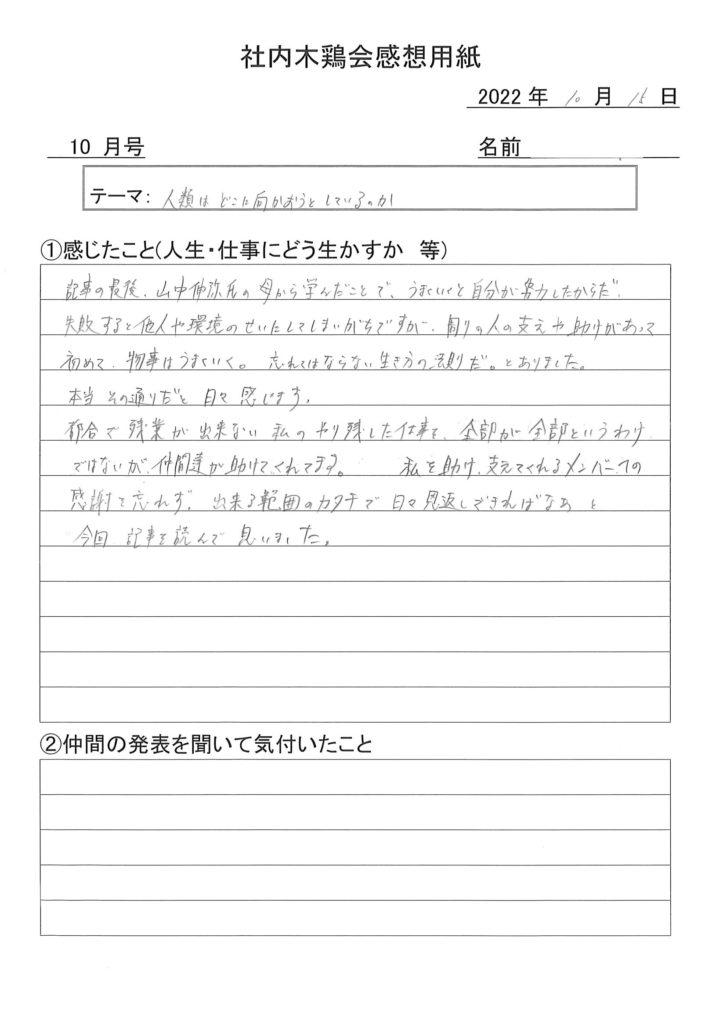 社内木鶏会感想用紙
2022 年 10 月 15 日
10 月号 名前
テーマ: 人類は どこに向かおうと しているのか
①感じたこと(人生・仕事にどう生かすか 等)
記事の最後、山中伸弥氏の母から学んだことで、うまくいくと自分が努力したからだ、
失敗すると他人や環境のせいにしてしまいがちですが、周りの人の支えや助けがあって
初めて、物事はうまくいく。忘れてはならない生き方の法則だ。とありました。
本当 その通りだと 日々 感じます。
都合で 残業が 出来ない 私の やり残した仕事を、全部が全部というわけ
ではないが、仲間達が助けてくれてます。 私を助け、支えてくれるメンバーへの
感謝を忘れず、出来る範囲のカタチで 日々見返しできればなあ と
今回 記事を読んで 思いました。
②仲間の発表を聞いて気付いたこと